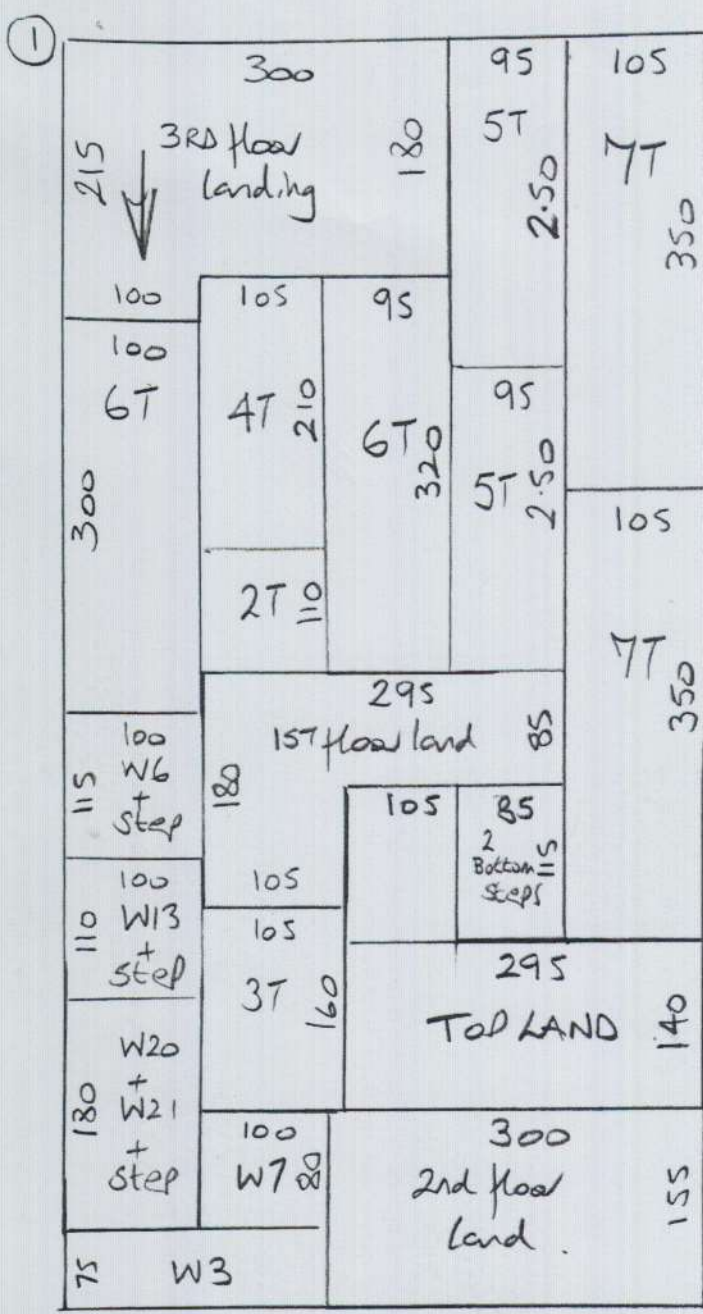 1
300
215
3RD floor
landing
180
100
95
5T
2.50
105
7T
350
100
6T
300
105
4T 210
95
6T 320
95
5T 2.50
2T 110
105
7T
350
295
1ST floor land
85
180
105
100
W6
+
step
115
105
85
2
Bottom
steps
115
100
W13
+
step
110
105
3T
160
295
TOP LAND
140
W20
+
W21
+
step
180
100
W7 88
300
2nd floor
land.
155
75
W3